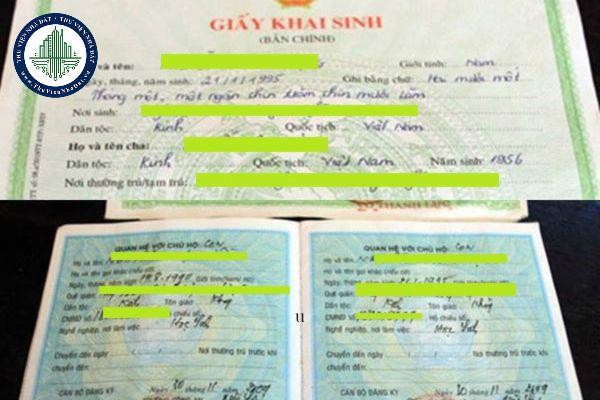 THƯ VIỆN NHÀ ĐẤT
www.ThuVienNhaDat.vn
GIẤY KHAI SINH
(BẢN CHÍNH)
và tên: Giới tính: Nam
ngày, tháng, năm sinh: 21/1/1995 Ghi bằng chữ: Hai mươi một
Tháng một, một ngàn chín trăm chín mươi lăm
Nơi sinh:
Dân tộc: Kinh Quốc tịch: Việt Nam
Họ và tên cha:
Dân tộc: Kinh Quốc tịch: Việt Nam Năm sinh: 1956
Nơi thường trú/tạm trú:
QUAN HỆ VỚI CHỦ HỘ: Con
Họ và tên:
Họ và tên gọi khác (nếu có):
Ngày, tháng, năm sinh: Giới tính
Quê quán:
Dân tộc: Kinh Tôn giáo: Không
CMND số: Hộ chiếu số:
Nghề nghiệp, nơi làm việc: Học sinh
Chuyển đến ngày Nơi thường trú trước khi
chuyển đến:
CÁN BỘ ĐĂNG KÝ Ngày 30 tháng 11 năm 2009
QUAN HỆ VỚI CHỦ HỘ: Con
Họ và tên:
Họ và tên gọi khác (nếu có):
Ngày, tháng, năm sinh: 1995 Giới tính
Quê quán:
Dân tộc: Kinh Tôn giáo: Không
CMND số: Hộ chiếu số:
Nghề nghiệp, nơi làm việc: Học sinh
Chuyển đến ngày Nơi thường trú trước khi
chuyển đến:
CÁN BỘ ĐĂNG KÝ Ngày 30 tháng 11 năm 2009
u